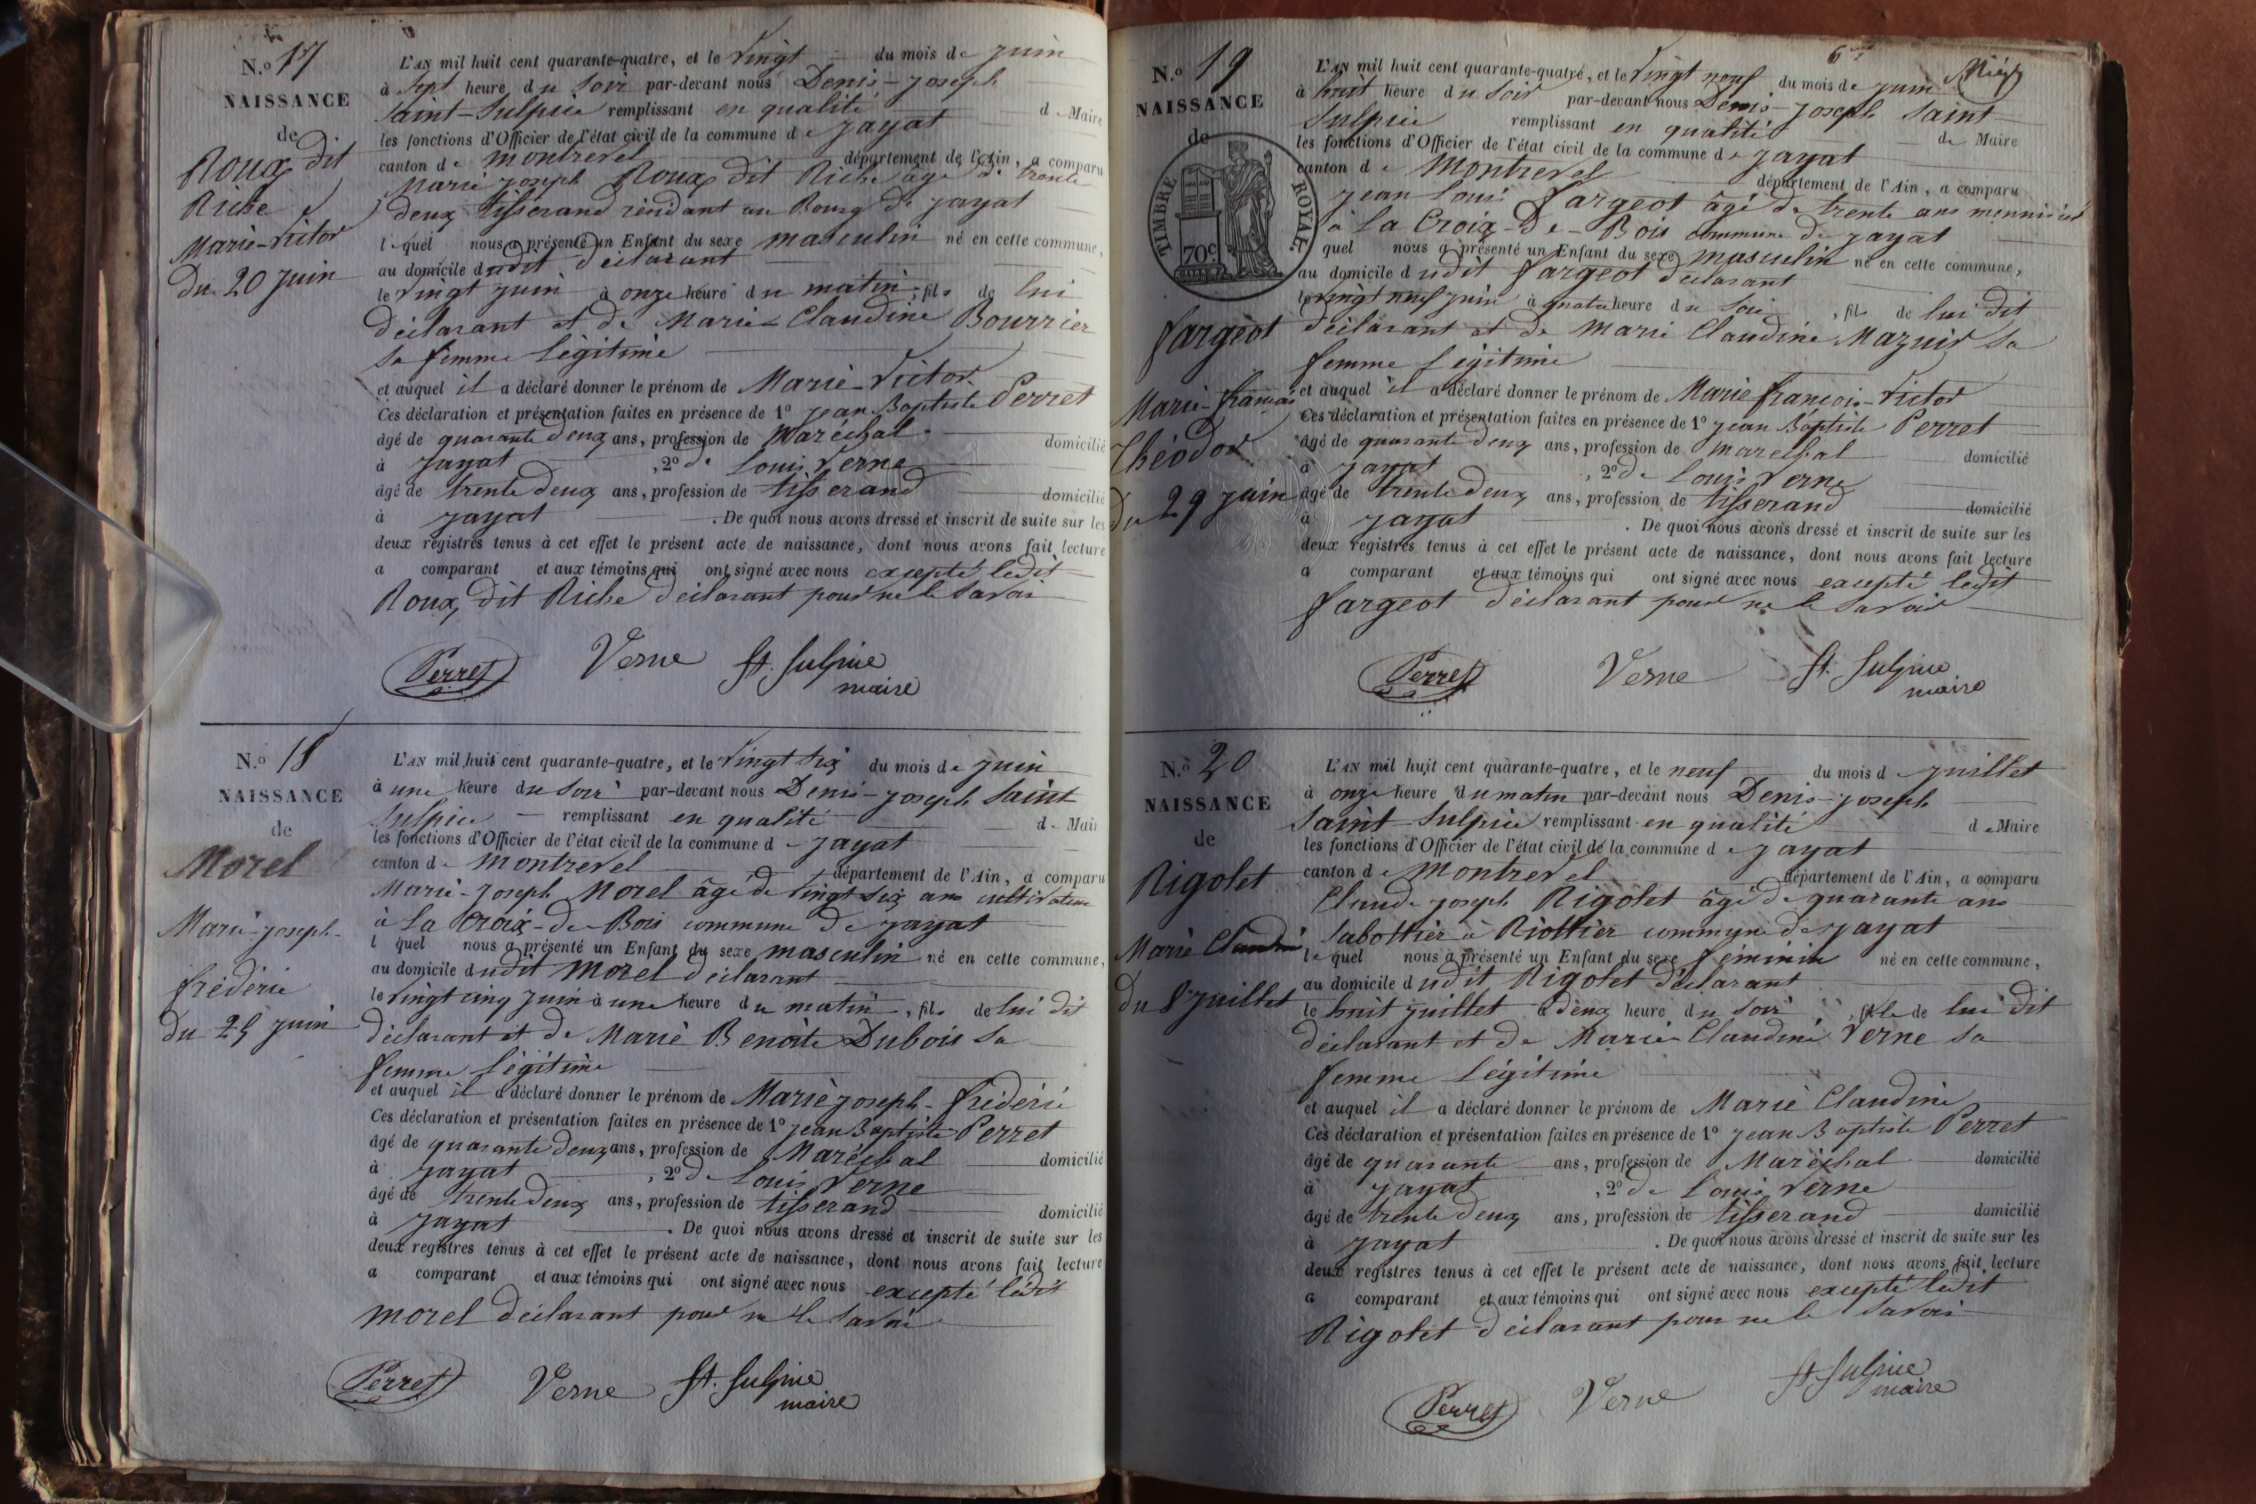 N.o 17
NAISSANCE
de
Roux dit
Riche
Marie-Victor
du 20 juin
L'AN mil huit cent quarante-quatre, et le vingt du mois de juin
à sept heure du soir par-devant nous Denis-joseph
Saint-Sulpice remplissant en qualité de Maire
les fonctions d'Officier de l'état civil de la commune de jayat
canton de montrevel département de l'Ain, a comparu
Marie joseph Roux dit Riche âgé de trente
deux tisserand résidant au Bourg de jayat
lequel nous a présenté un Enfant du sexe masculin né en cette commune,
au domicile dudit déclarant
le vingt juin à onze heure du matin, fils de lui
déclarant et de Marie-Claudine Bourrier
sa femme légitime
et auquel il a déclaré donner le prénom de Marie-Victor
Ces déclaration et présentation faites en présence de 1o jean Baptiste Perret
âgé de quarante deux ans, profession de Maréchal domicilié
à jayat, 2o de Louis Verne
âgé de trente deux ans, profession de tisserand domicilié
à jayat. De quoi nous avons dressé et inscrit de suite sur les
deux registres tenus à cet effet le présent acte de naissance, dont nous avons fait lecture
a comparant et aux témoins qui ont signé avec nous excepté ledit
Roux dit Riche déclarant pour ne le savoir
Perret Verne St. Sulpice
maire
N.o 18
NAISSANCE
de
Morel
Marie-joseph-
frédéric
du 25 juin
L'AN mil huit cent quarante-quatre, et le vingt six du mois de juin
à une heure du soir par-devant nous Denis-joseph Saint
Sulpice remplissant en qualité d Maire
les fonctions d'Officier de l'état civil de la commune d jayat
canton de montrevel département de l'Ain, a comparu
Marie-joseph Morel âgé de vingt six ans cultivateur
à la Croix-de-Bois commune de jayat
l quel nous a présenté un Enfant du sexe masculin né en cette commune,
au domicile dudit Morel déclarant
le vingt cinq juin à une heure du matin, fils de lui dit
déclarant et de Marie Benoite Dubois sa
femme légitime
et auquel il a déclaré donner le prénom de Marie joseph-frédéric
Ces déclaration et présentation faites en présence de 1o jean Baptiste Perret
âgé de quarante deux ans, profession de Maréchal domicilié
à jayat, 2o de Louis Verne
âgé de trente deux ans, profession de tisserand domicilié
à jayat. De quoi nous avons dressé et inscrit de suite sur les
deux registres tenus à cet effet le présent acte de naissance, dont nous avons fait lecture
a comparant et aux témoins qui ont signé avec nous excepté ledit
morel déclarant pour ne le savoir
Perret Verne St. Sulpice
maire
N.o 19
NAISSANCE
de
TIMBRE ROYAL
70c
fargeot
Marie-françois
Théodor
du 29 juin
L'AN mil huit cent quarante-quatre, et le vingt neuf du mois de juin
à huit heure du soir par-devant nous Denis-joseph Saint
Sulpice remplissant en qualité de Maire
les fonctions d'Officier de l'état civil de la commune de jayat
canton de Montrevel département de l'Ain, a comparu
jean louis fargeot âgé de trente ans menuisier
à la Croix-De-Bois commune de jayat
quel nous a présenté un Enfant du sexe masculin né en cette commune,
au domicile dudit fargeot déclarant
le vingt neuf juin à quatre heure du soir, fils de lui dit
déclarant et de Marie Claudine Mazuir sa
femme légitime
et auquel il a déclaré donner le prénom de Marie françois-Victor
Ces déclaration et présentation faites en présence de 1o jean Baptiste Perret
âgé de quarante deux ans, profession de marechal domicilié
à jayat, 2o de Louis Verne
âgé de trente deux ans, profession de tisserand domicilié
à jayat. De quoi nous avons dressé et inscrit de suite sur les
deux registres tenus à cet effet le présent acte de naissance, dont nous avons fait lecture
a comparant et aux témoins qui ont signé avec nous excepté ledit
fargeot déclarant pour ne le savoir
Perret Verne St. Sulpice
maire
N.o 20
NAISSANCE
de
Rigolet
Marie Claudine
du 8 juillet
L'AN mil huit cent quarante-quatre, et le neuf du mois d juillet
à onze heure du matin par-devant nous Denis-joseph
Saint-Sulpice remplissant en qualité de Maire
les fonctions d'Officier de l'état civil de la commune de jayat
canton de Montrevel département de l'Ain, a comparu
Claude joseph Rigolet âgé de quarante ans
Sabottier à Riottier commune de jayat
lequel nous a présenté un Enfant du sexe féminin né en cette commune,
au domicile dudit Rigolet déclarant
le huit juillet à deux heure du soir, fille de lui dit
déclarant et de Marie Claudine Verne sa
femme légitime
et auquel il a déclaré donner le prénom de Marie Claudine
Ces déclaration et présentation faites en présence de 1o jean Baptiste Perret
âgé de quarante ans, profession de Maréchal domicilié
à jayat, 2o de Louis Verne
âgé de trente deux ans, profession de tisserand domicilié
à jayat. De quoi nous avons dressé et inscrit de suite sur les
deux registres tenus à cet effet le présent acte de naissance, dont nous avons fait lecture
a comparant et aux témoins qui ont signé avec nous excepté ledit
Rigolet déclarant pour ne le savoir
Perret Verne St. Sulpice
maire